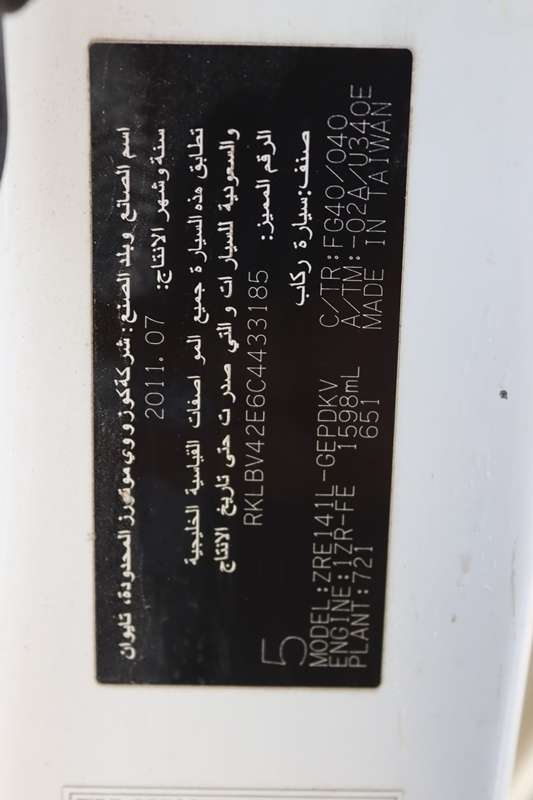 اسم الصانع وبلد الصنع: شركة كوزووي موتورز المحدودة، تايوان
سنة وشهر الانتاج: 2011.07
تطابق هذه السيارة جميع المواصفات القياسية الخليجية
والسعودية للسيارات والتي صدرت حتى تاريخ الانتاج
الرقم المميز: RKLBV42E6C4433185
صنف: سيارة ركاب
5
MODEL:ZRE141L-GEPDKV C/TR:FG40/040
ENGINE:1ZR-FE 1598mL A/TM:-02A/U340E
PLANT:721 651 MADE IN TAIWAN